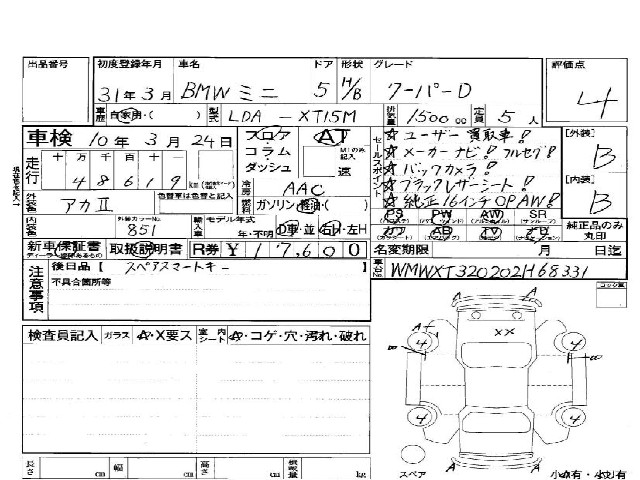 出品番号 初度登録年月 車名 ドア 形状 グレード 評価点
31年3月 BMW ミニ 5 H/B クーパーD 4
車歴 自家用・( ) 型式 LDA - XT15M 排気量 1500 cc 定員 5人
車検 10年3月24日 フロア コラム ダッシュ AT 速
走行 十 万 千 百 十 一
4 8 6 1 9 km
冷房 AAC
燃料 ガソリン 軽油・( )
セールスポイント
☆ ユーザー買取車!
☆ メーカーナビ! フルセグ!
☆ バックカメラ!
☆ ブラックレザーシート!
☆ 純正16インチOPAW!
[外装] B
[内装] B
外装色 アカII 色替車は色替と記入
PS PW AW SR
純正品のみ丸印
内装色 外装カラーNo. 851 輸入車 モデル年式 年・不明 D車・並 右H・左H
新車保証書 取扱説明書 R券 ¥17,600 名変期限 月 日迄
注意事項 後日品【 スペアスマートキー 】
不具合箇所等
車台No. WMWXT320202H68331
検査員記入 ガラス A・X要ス 室内シート A・コゲ・穴・汚れ・破れ
A
XX
4 4
4 4
スペア
長さ cm 幅 cm 高さ cm 積載量 kg